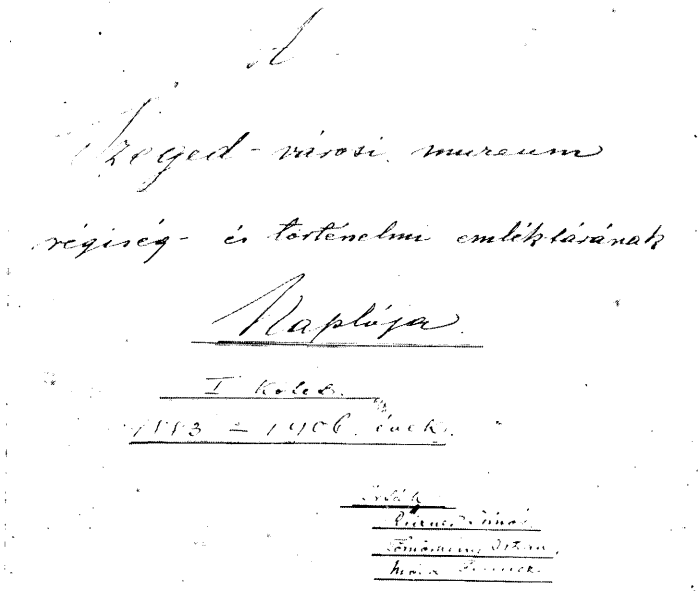 A
Szeged-városi muzeum
régiség- és történelmi emléktárának
Naplója
I Kötet.
1883 – 1906. évek.
Irták
János
Tömörkény István,
Móra Ferencz.